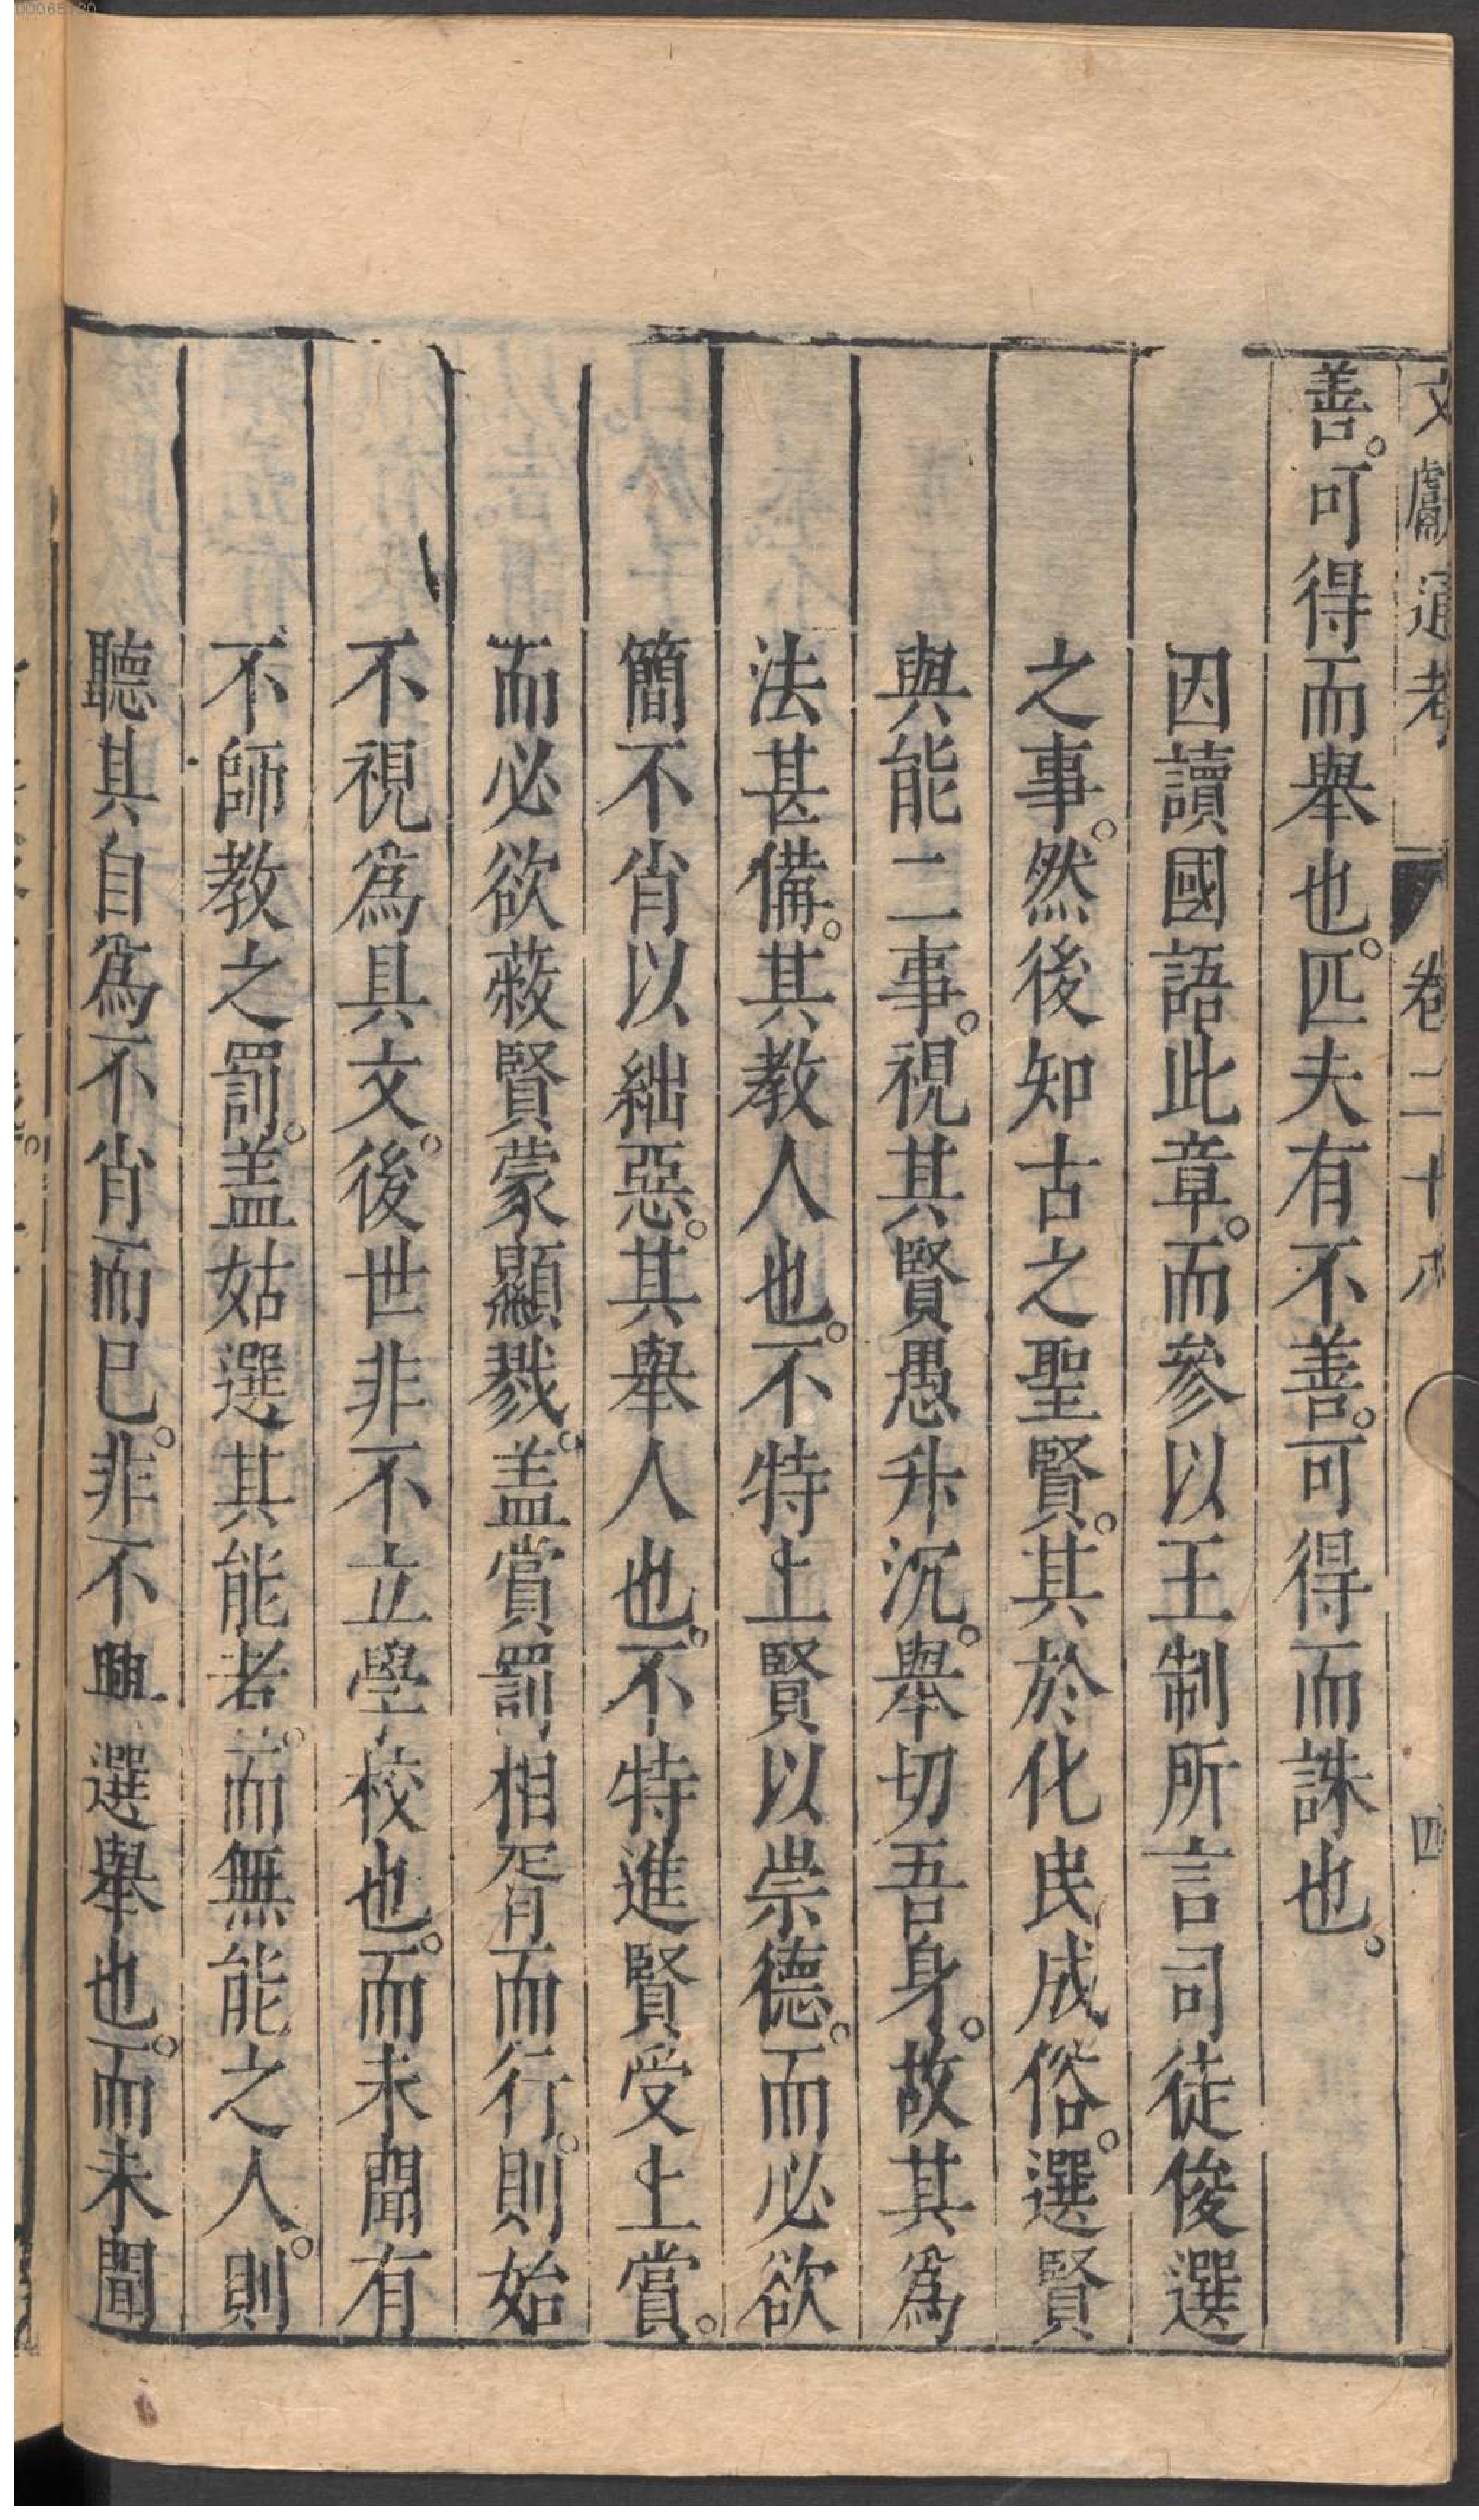 文獻通考 卷二十八 四
善。可得而舉也。匹夫有不善。可得而誅也。
因讀國語此章。而參以王制所言司徒俊選
之事。然後知古之聖賢。其於化民成俗。選賢
與能二事。視其賢愚升沉。舉切吾身。故其爲
法甚備。其教人也。不特上賢以崇德。而必欲
簡不肖以絀惡。其舉人也。不特進賢受上賞。
而必欲蔽賢蒙顯戮。盖賞罰相胥而行。則始
不視爲具文。後世非不立學校也。而未聞有
不師教之罰。盖姑選其能者。而無能之人。則
聽其自爲不肖而已。非不興選舉也。而未聞